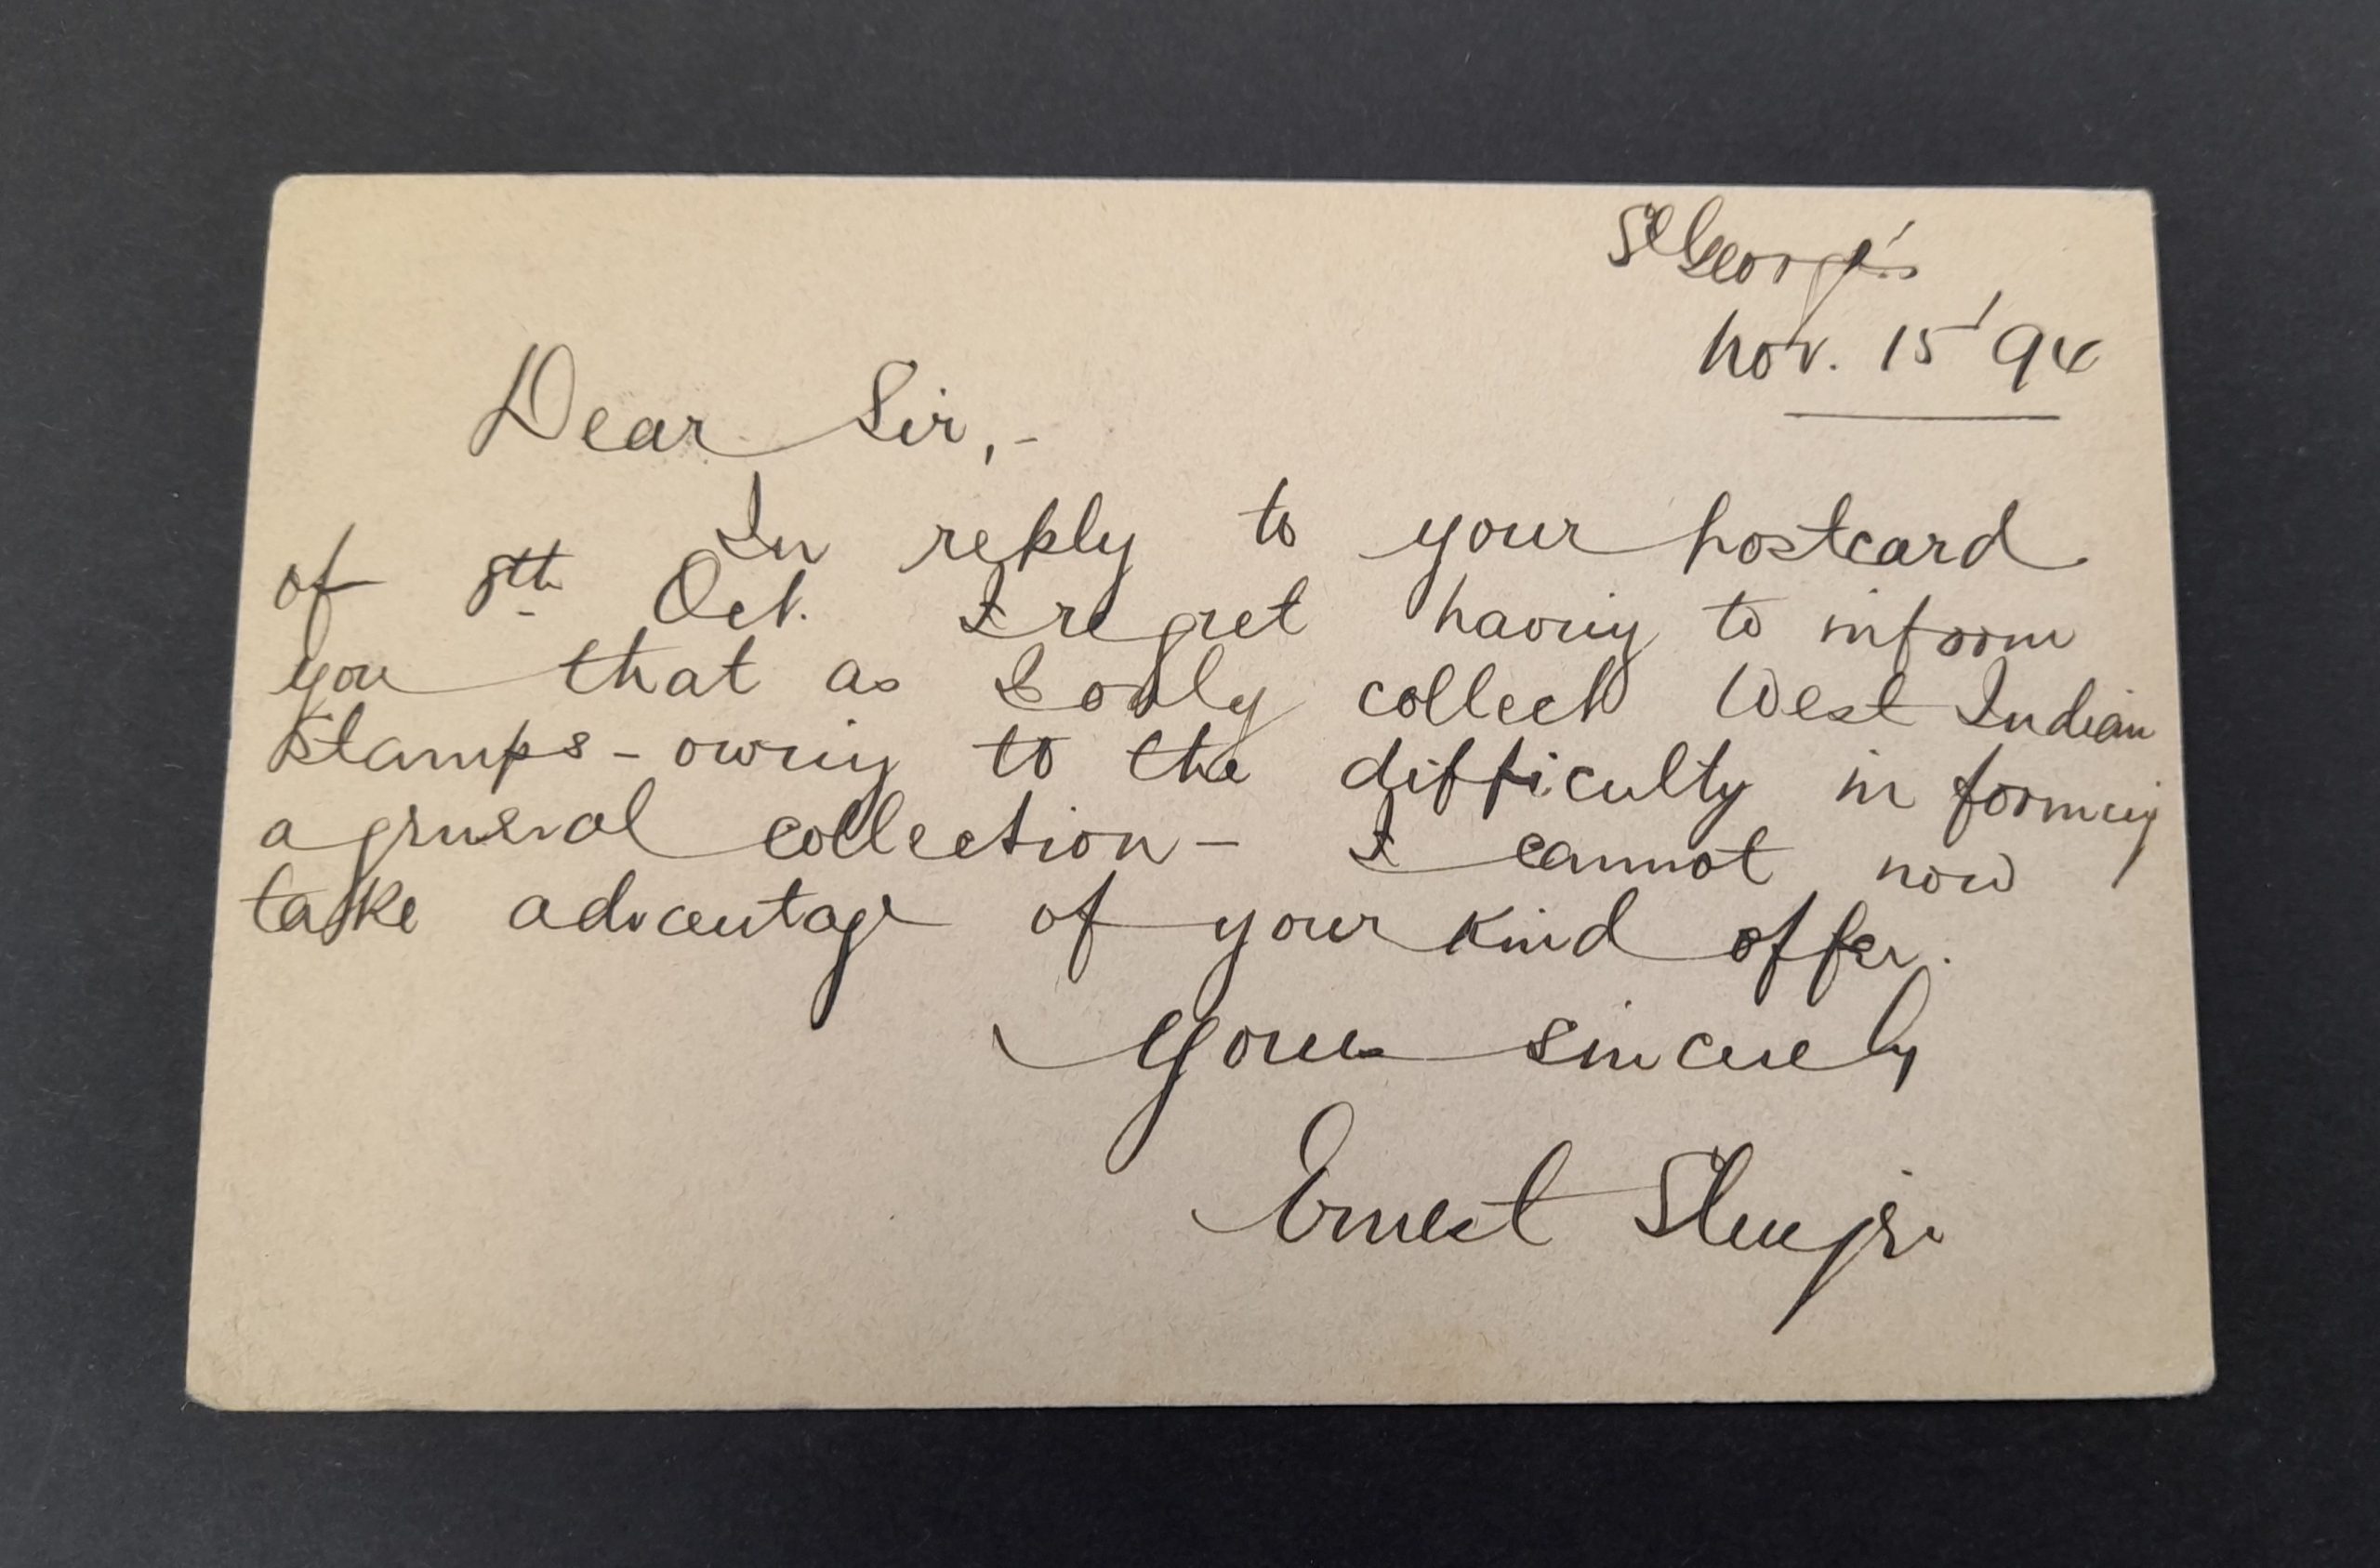 St George's
Nov. 15 '94
Dear Sir,-
In reply to your postcard
of 8th Oct. I regret having to inform
you that as I only collect West Indian
Stamps - owing to the difficulty in forming
a general collection - I cannot now
take advantage of your kind offer.
Yours sincerely
Ernest